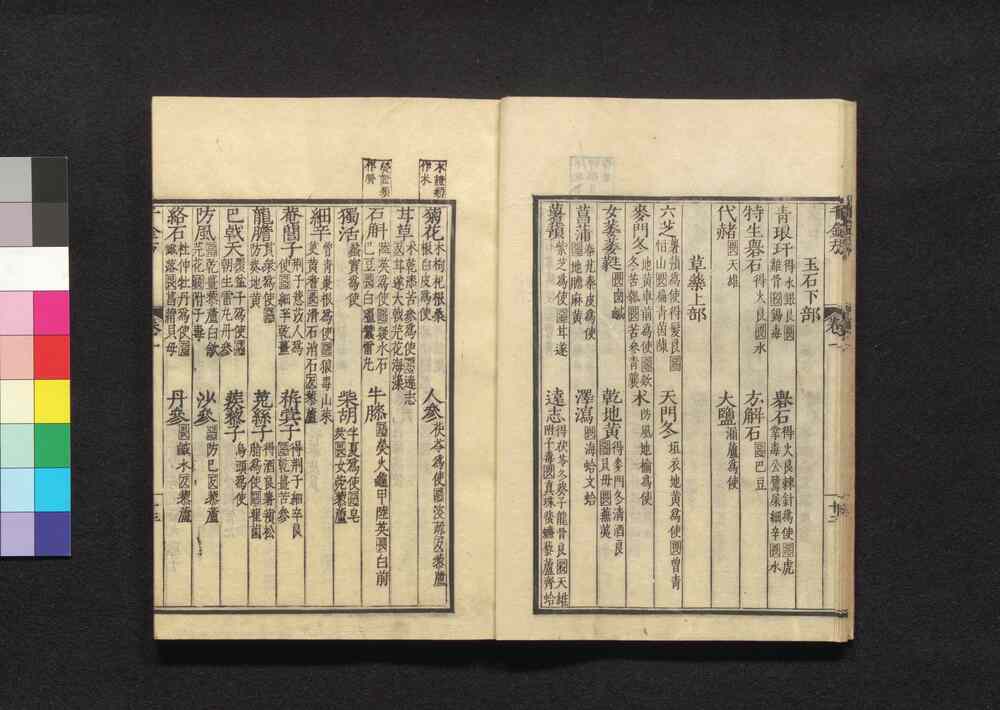 玉石下部
青琅玕 得水銀良 畏 雞骨 殺 錫毒
礜石 得火良 棘針為使 惡 虎掌毒公鶩屎細辛 畏 水
特生礜石 得火良 畏 水
方解石 惡 巴豆
代赭 畏 天雄
大鹽 漏蘆為使
草藥上部
六芝 薯蕷為使得髮良 惡 恒山 畏 扁青茵蔯
天門冬 垣衣地黃為使 畏 曾青
麥門冬 地黃車前為使 惡 款冬苦瓠 畏 苦參青蘘
朮 防風地榆為使
女萎萎蕤 畏 鹵鹹
乾地黃 得麥門冬清酒良 惡 貝母 畏 蕪荑
菖蒲 秦艽秦皮為使 惡 地膽麻黃
澤瀉 畏 海蛤文蛤
薯蕷 紫芝為使 惡 甘遂
遠志 得茯苓冬葵子龍骨良 殺 天雄附子毒 畏 真珠蜚蠊藜蘆齊蛤
朮證類作水
作
菊花 朮枸杞根桑根白皮為使
人參 茯苓為使 惡 溲疏 反 藜蘆
甘草 朮乾漆苦參為使 惡 遠志 反 甘遂大戟芫花海藻
石斛 陸英為使 惡 凝水石巴豆 畏 白殭蠶雷丸
牛膝 惡 螢火龜甲陸英 畏 白前
獨活 蠡實為使
柴胡 半夏為使 惡 皂莢 畏 女菀藜蘆
細辛 曾青棗根為使 惡 狼毒山茱萸黃耆 畏 滑石消石 反 藜蘆
菴䕡子 荊子薏苡人為使 惡 細辛乾薑
菥蓂子 得荊子細辛良 惡 乾薑苦參
龍膽 貫衆為使 惡 防葵地黃
菟絲子 得酒良薯蕷松脂為使 惡 雚菌
巴戟天 覆盆子為使 惡 朝生雷丸丹參
蒺藜子 烏頭為使
防風 惡 乾薑藜蘆白斂芫花 殺 附子毒
沙參 惡 防巳 反 藜蘆
絡石 杜仲牡丹為使 惡 鐵落 畏 菖蒲貝母
丹參 畏 鹹水 反 藜蘆